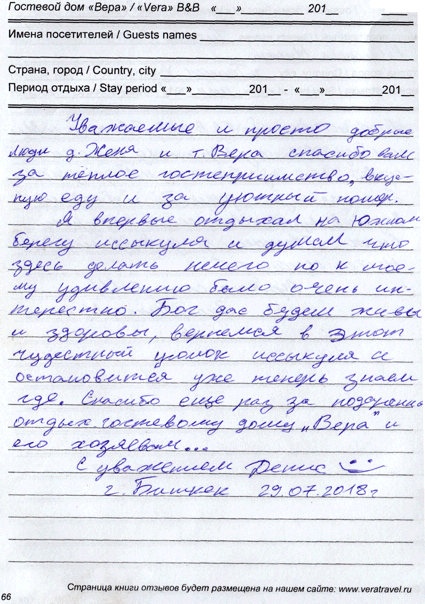 Гостевой дом «Вера» / «Vera» B&B «___»__________ 201__ ____
Имена посетителей / Guests names
Страна, город / Country, city
Период отдыха / Stay period «___»__________201__ - «___»__________201__
Уважаемые и просто добрые
люди д. Женя и т. Вера спасибо вам
за тёплое гостеприимство, вкус-
ную еду и за уютный номер.
Я впервые отдыхал на Южном
берегу иссыкуля и думал что
здесь делать нечего но к мое-
му удивлению было очень ин-
терестно. Бог дас будем живы
и здоровы, вернемся в этот
чудестный уголок иссыкуля а
остановится уже теперь знаем
где. Спасибо еще раз за подаренный
отдых гостевому дому „Вера" и
его хозяевам...
С уважением Денис
г. Бишкек 29.07.2018г
Страница книги отзывов будет размещена на нашем сайте: www.veratravel.ru
66